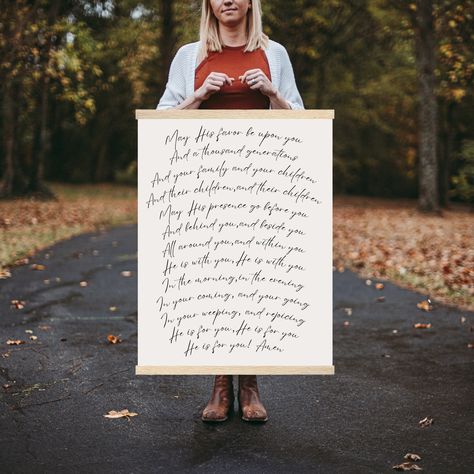 May His favor be upon you
And a thousand generations
And your family and your children
And their children, and their children
May His presence go before you
And behind you, and beside you
All around you, and within you
He is with you, He is with you
In the morning, in the evening
In your coming, and your going
In your weeping, and rejoicing
He is for you, He is for you
He is for you! Amen